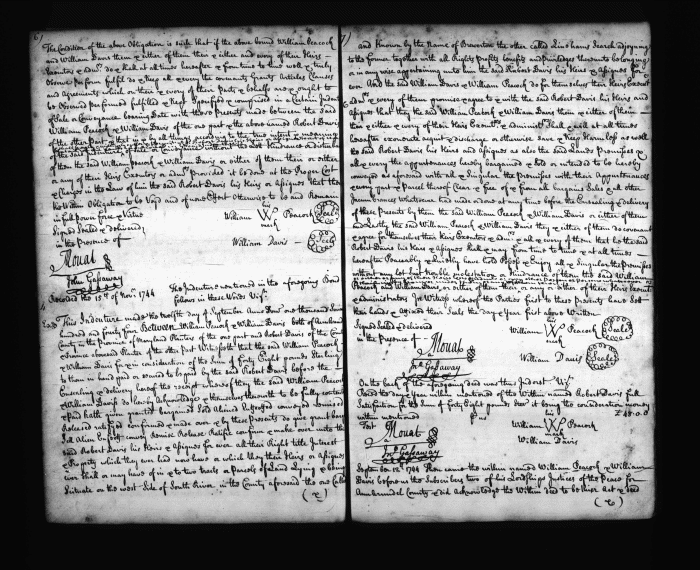 6)
The Condition of the above Obligation is such that if the above bound William Peacock
and William Davis them & either of them their & either and every of their Heirs
Executors & admrs do & shall at all times hereafter & from time to time & well & truly
Observe perform fulfil do & keep all & every the covenants Grants Articles Clauses
and Agreements which on their & every of their Part & behalfs are & ought to
be Observed performed fulfilled & kept Specified & comprised in a Certain Indenture
of Sale or Conveyance bearing Date with these Presents made between the said
William Peacock & William Davis of the one part & the above named Robert Davis
of the other Part in & by all things according to the true intent & meaning
of them the said William Peacock & William Davis or either of them their or either
or any of their Heirs Executors or admrs provided it be done at the Proper Cost
& Charges in the Law of him the said Robert Davis his Heirs or Assigns that then
the within Obligation to be Void and of none Effect Otherwise to be and Remain
in full power force & Virtue
Signed Sealed & delivered
in the presence of
his
William W Peacock Seale
mark
William Davis Seale
Mouat
John Gassaway
Recorded the 15th of Novr 1744
The Indenture mentioned in the aforegoing Bond
follows in these Words Vizt
This Indenture made the twelfth day of September Anno Dom one thousand Seven
hundred and forty four Between William Peacock & William Davis both of Annarundel
County in the Province of Maryland Planters of the one part and Robert Davis of the County
& Province aforesaid Planter of the other Part Witnesseth that the said William Peacock
& William Davis for & in consideration of the Sum of Forty Eight pounds Sterling
to them in hand paid or secured to be paid by the said Robert Davis before the
Ensealing & delivery hereof the receipt whereof they the said William Peacock
& William Davis do hereby Acknowledge & themselves therewith to be fully contented
& paid hath given granted bargained Sold Aliened Enfeoffed conveyed
Released ratified confirmed & made over & by these presents do give grant bargain
Sell Alien Enfeoff convey Remise Release Ratifie confirm & make over unto the
said Robert Davis his Heirs & Assigns for ever all their Right title Interest
& Property which they ever had now have or which they their Heirs or Assigns
ever shall or may have of in & to two tracts or Parcels of Land Lying & being
Situate on the west Side of South River in the County aforesaid the one Called
7)
and Known by the Name of Brewerton the other called Linthams Search adjoyning
to the former together with all Rights Profits benefits and Priviledges thereunto belonging
or in any wise appertaining unto him the said Robert Davis his Heirs & Assigns for
ever And the said William Davis & William Peacock do for themselves their Heirs Execrs
admrs & every of them promise & agree to & with the said Robert Davis his Heirs and
Assigns that they the said William Peacock & William Davis them & either of them
their & either & every of their Heirs & administrs shall & will at all times
hereafter exonerate acquit & discharge or otherwise save & keep Harmless as well
the said Robert Davis his Heirs and Assigns as also the said Lands Premisses &
all & every the appurtenances hereby bargained & sold or intended to be hereby
conveyed as aforesaid with all & Singular the Premisses with their Appurtenances
& every part & Parcel thereof Clear & free of & from all bargains Sales & all other
Incumbrances Whatsoever had made or done at any time before the Ensealing & delivery
of these Presents by them the said William Peacock & William Davis or either of them
and Lastly the said William Peacock & William Davis they & either of them do covenant
& agree for themselves their Heirs Executors & admrs all & every of them that he the said
Robert Davis his Heirs & Assigns shall & may from time to time & at all times
hereafter Peaceably & Quietly have hold Possess & Enjoy all & Singular the Premisses
without any let suit trouble molestation or hindrance of them the said William
Peacock and William Davis or either of them their or either of their Heirs Execrs
& administrators In Witness whereof the Parties first to these Presents have Sett
their hands & affixed their Seals the day & Year first above Written
Signed Sealed & delivered
in the Presence of
his
William W Peacock Seale
mark
William Davis Seale
Mouat
Jno Gassaway
On the back of the aforegoing deed was thus Indorst Vizt
Recd the day & Year within mentioned of the within Named Robert Davis full
Satisfaction for the Sum of Forty Eight pounds Ster it being the consideration money
within mentioned
£48.0.0
Test
his
William W Peacock
mark
William Davis
Mouat
Jno Gassaway
September 12th 1744 Then came the within named William Peacock & William
Davis before us the Subscribers two of his Lordships Justices of the Peace for
Annarundel County & did Acknowledge the Within deed to be their Act & deed